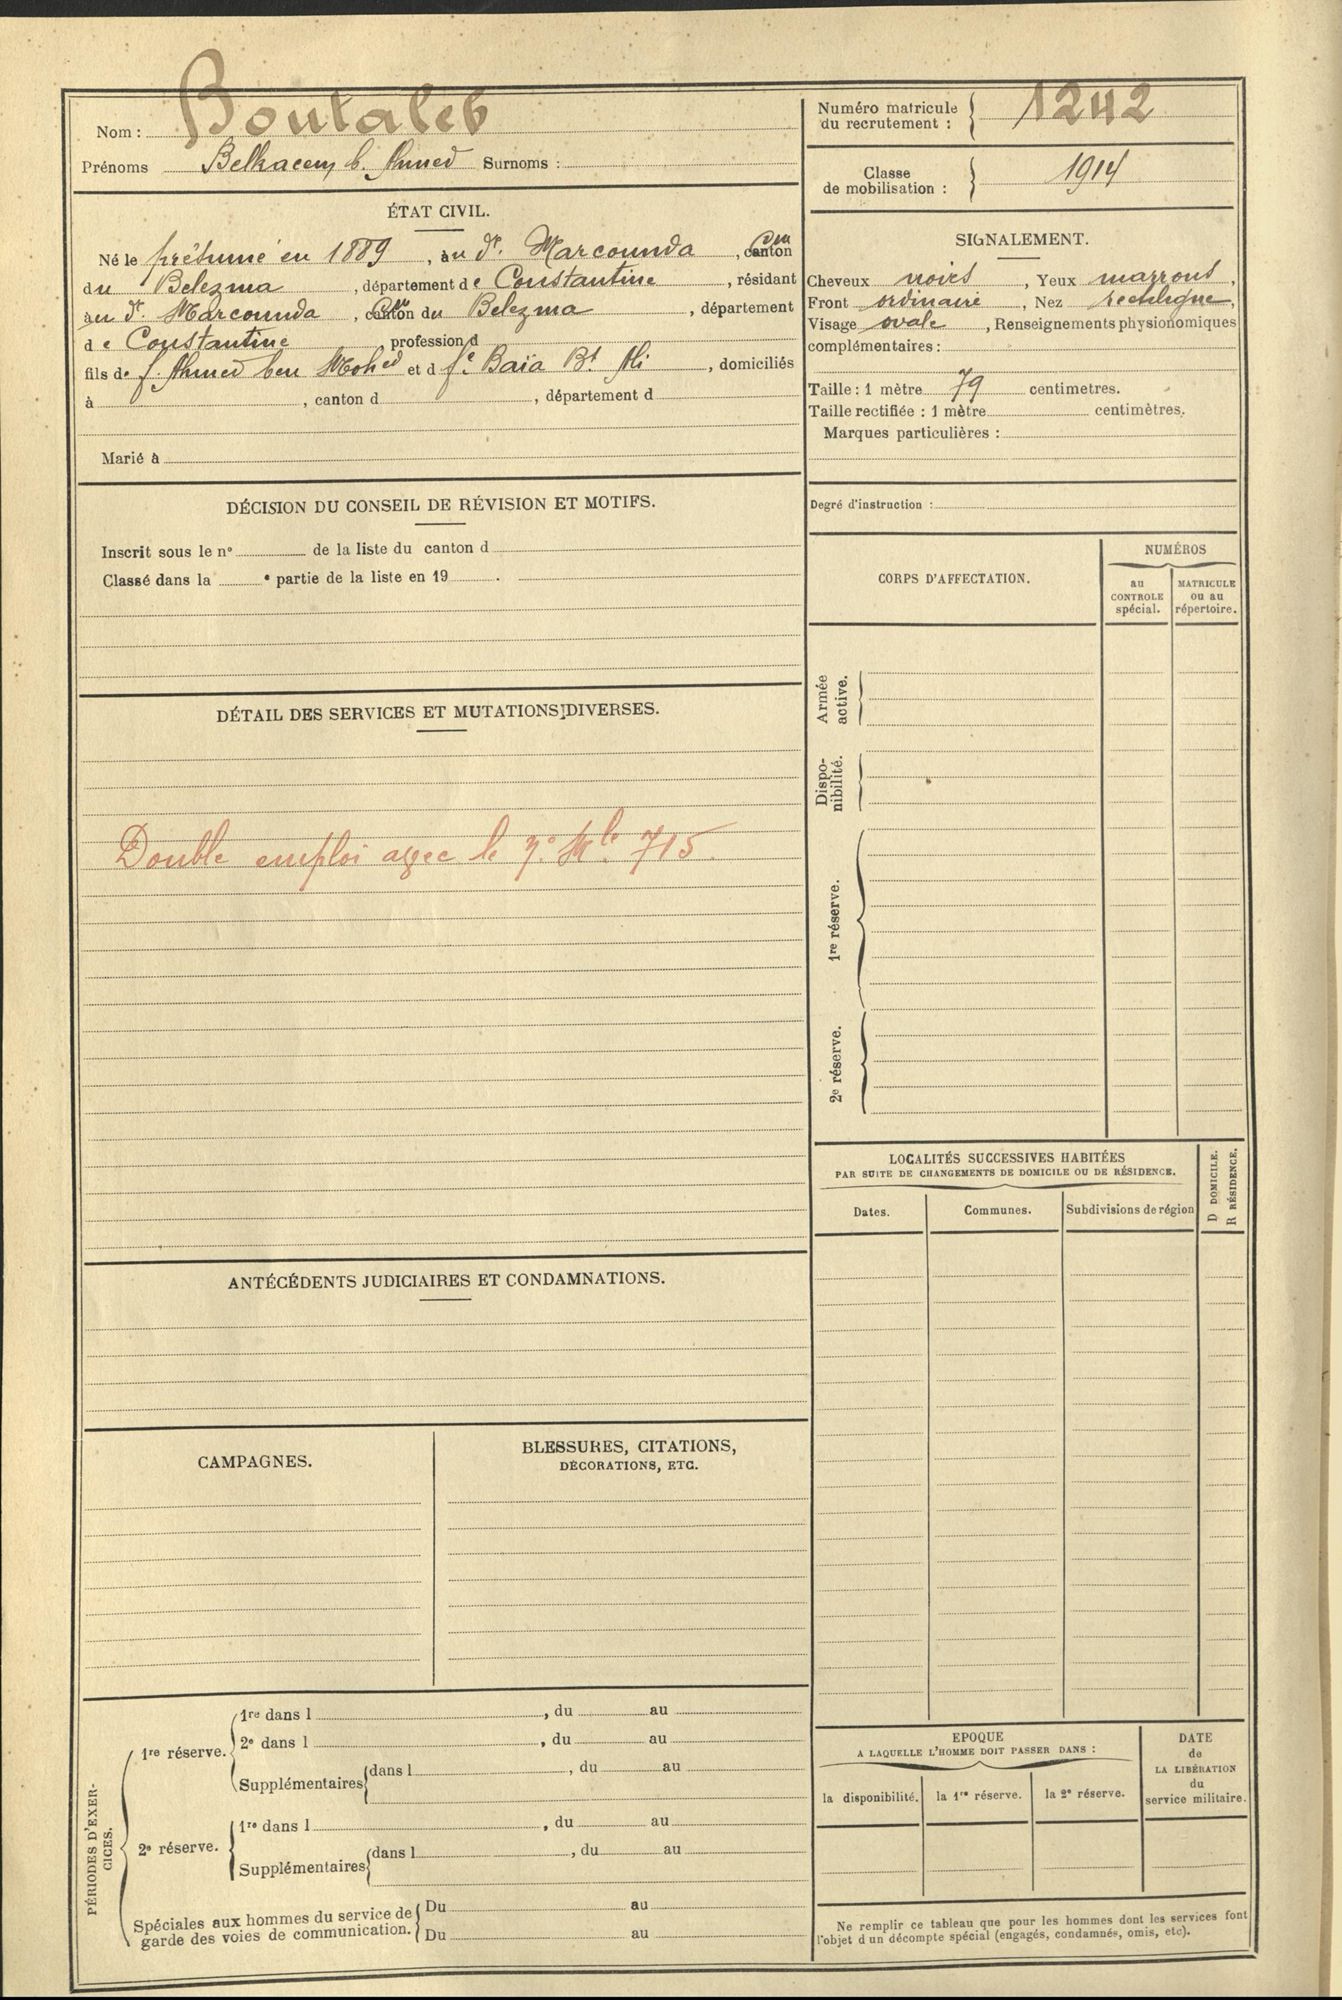 Nom : Boutaleb
Prénoms Belkacem b. Ahmed Surnoms :
Numéro matricule du recrutement : 1242
Classe de mobilisation : 1914
ÉTAT CIVIL.
Né le présumé en 1889, au dr. Marcounda, canton Cm
du Belezma, département de Constantine, résidant
au dr. Marcounda, canton Cm du Belezma, département
de Constantine profession d
fils de f. Ahmed ben Mohed et d fe Baïa Bt Ali, domiciliés
à , canton d , département d
Marié à
SIGNALEMENT.
Cheveux noirs, Yeux marrons,
Front ordinaire, Nez rectiligne,
Visage ovale, Renseignements physionomiques
complémentaires :
Taille : 1 mètre 79 centimetres.
Taille rectifiée : 1 mètre centimètres.
Marques particulières :
DÉCISION DU CONSEIL DE RÉVISION ET MOTIFS.
Inscrit sous le n° de la liste du canton d
Classé dans la e partie de la liste en 19 .
Degré d'instruction :
CORPS D'AFFECTATION.
NUMÉROS
au CONTROLE spécial.
MATRICULE ou au répertoire.
Armée active.
Dispo-nibilité.
1re réserve.
2e réserve.
DÉTAIL DES SERVICES ET MUTATIONS DIVERSES.
Double emploi avec le No Mle 715
LOCALITÉS SUCCESSIVES HABITÉES
PAR SUITE DE CHANGEMENTS DE DOMICILE OU DE RÉSIDENCE.
D DOMICILE.
R RÉSIDENCE.
Dates. Communes. Subdivisions de région
ANTÉCÉDENTS JUDICIAIRES ET CONDAMNATIONS.
CAMPAGNES.
BLESSURES, CITATIONS,
DÉCORATIONS, ETC.
PÉRIODES D'EXER-
CICES.
1re réserve.
1re dans l , du au
2e dans l , du au
Supplémentaires dans l , du au
2e réserve.
1re dans l , du au
Supplémentaires dans l , du au
Spéciales aux hommes du service de
garde des voies de communication.
Du au
Du au
EPOQUE
A LAQUELLE L'HOMME DOIT PASSER DANS :
la disponibilité. la 1re réserve. la 2e réserve.
DATE
de
LA LIBÉRATION
du
service militaire.
Ne remplir ce tableau que pour les hommes dont les services font
l'objet d un décompte spécial (engagés, condamnés, omis, etc).